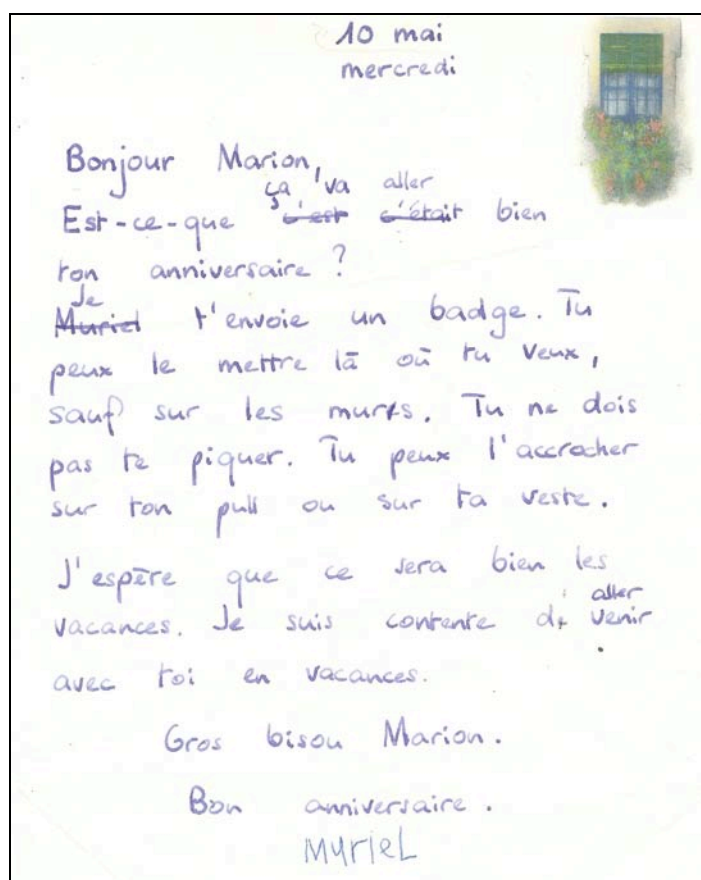 10 mai
mercredi
Bonjour Marion,
ça va aller
Est-ce-que c'est c'était bien
ton anniversaire ?
Je
Muriel t'envoie un badge. Tu
peux le mettre là où tu veux,
sauf sur les murs. Tu ne dois
pas te piquer. Tu peux l'accrocher
sur ton pull ou sur ta veste.
J'espère que ce sera bien les
aller
vacances. Je suis contente d' venir
avec toi en vacances.
Gros bisou Marion.
Bon anniversaire.
MURIEL